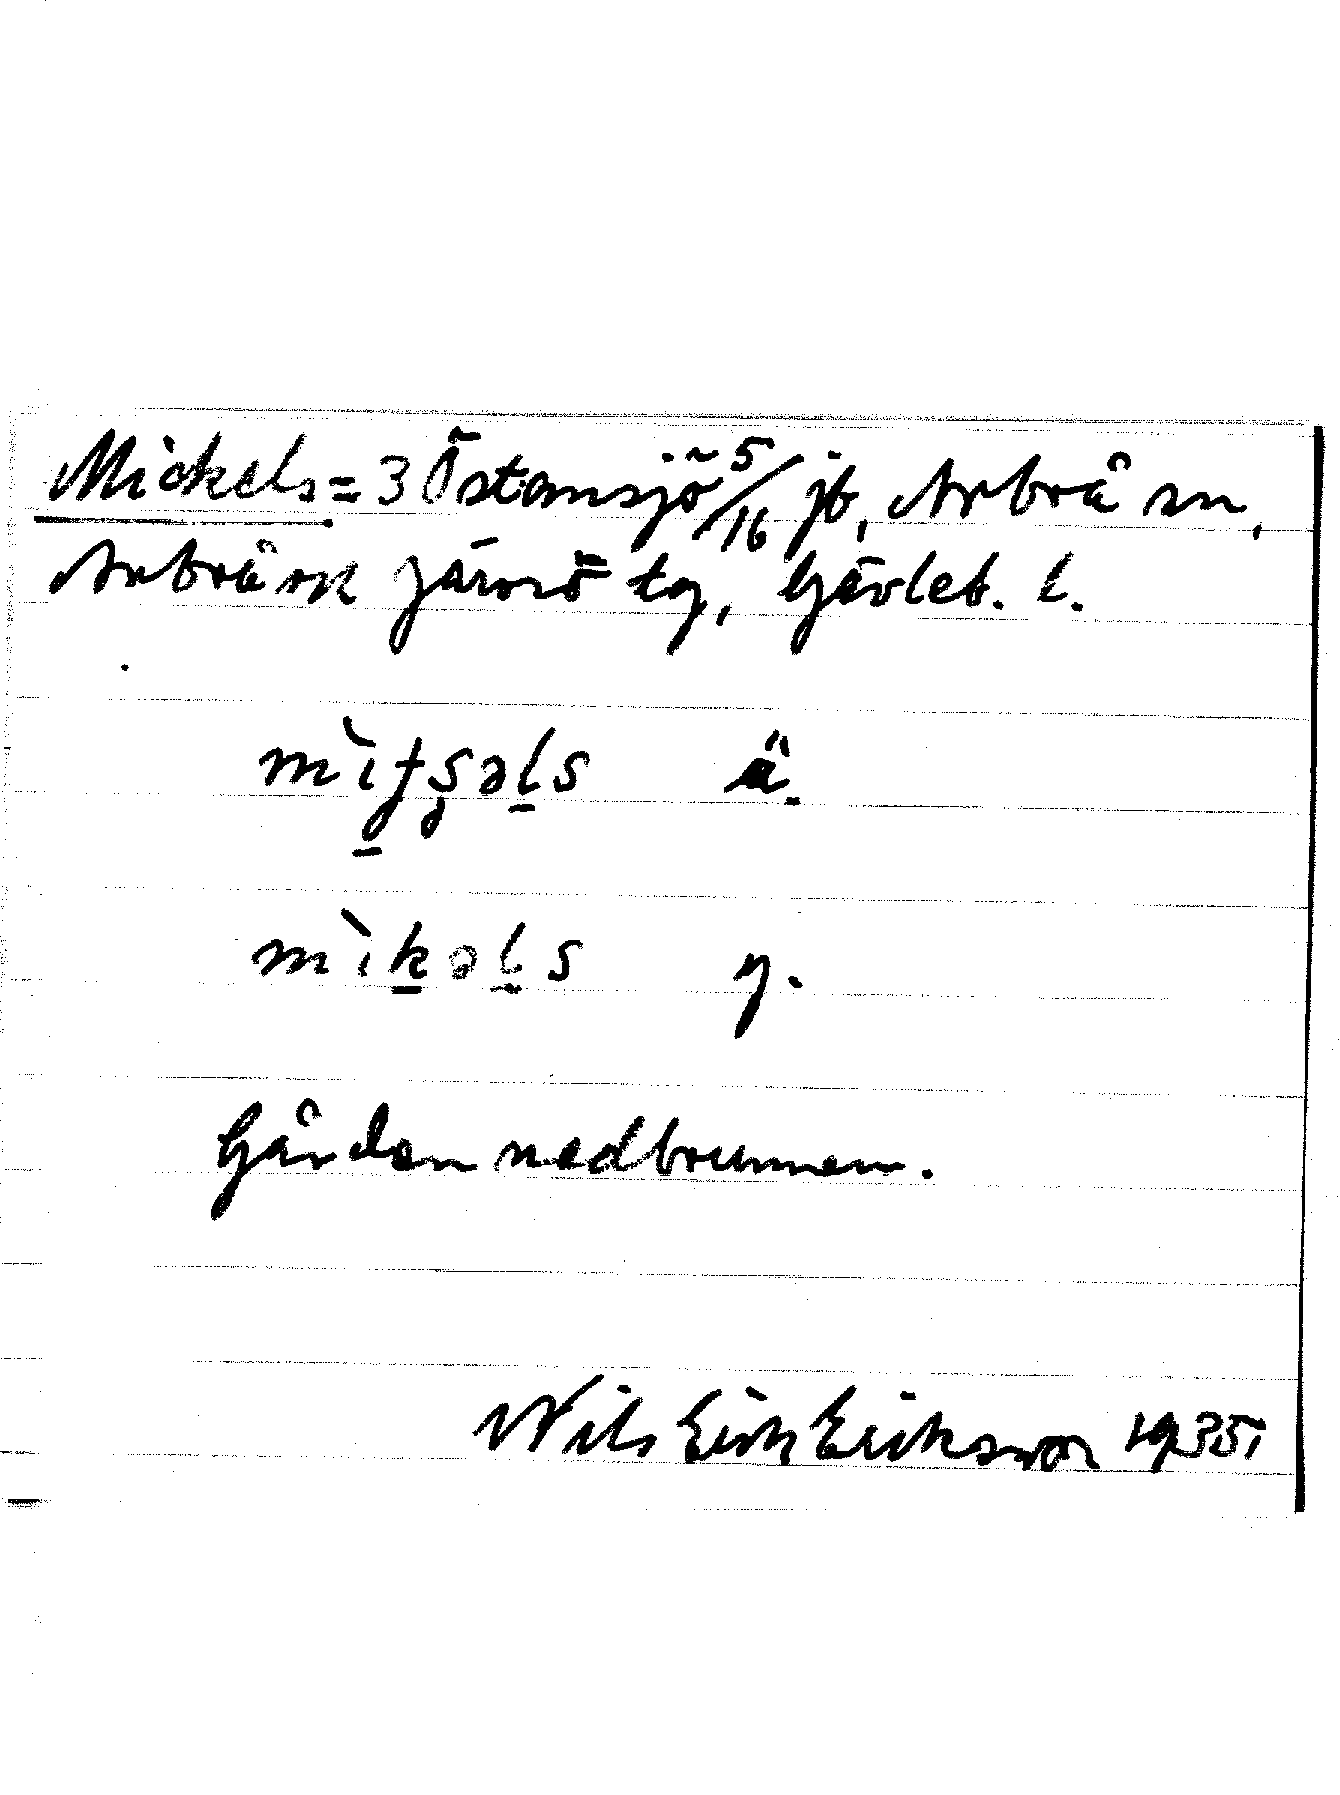 Mickels = 3 Östansjö 5/16 jb, Arbrå sn,
Arbrå ok Järvsö tg, Gävleb. l.
mìt̠ʂəl̠s ä.
mìk̠əl̠s y.
Gården nedbrunnen.
Nils Erik Eriksson 1935